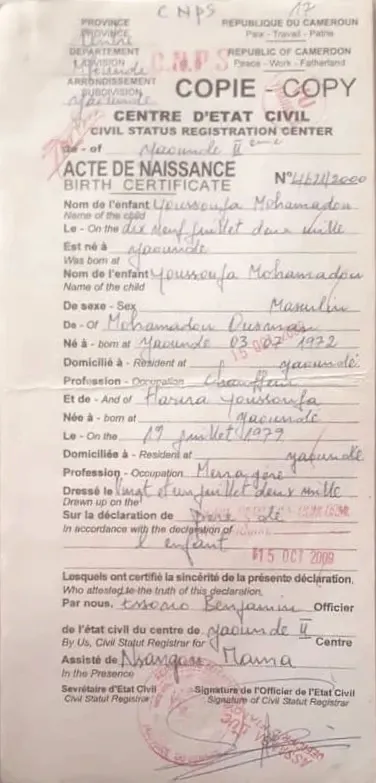 CNPS
17
PROVINCE
PROVINCE
Centre
DEPARTEMENT
DIVISION
ARRONDISSEMENT
SUBDIVISION
Yaounde
REPUBLIQUE DU CAMEROUN
Paix - Travail - Patrie
REPUBLIC OF CAMEROON
Peace - Work - Fatherland
C.N.P.S
COPIE - COPY
CENTRE D'ETAT CIVIL
CIVIL STATUS REGISTRATION CENTER
de - of Yaounde II eme
ACTE DE NAISSANCE
BIRTH CERTIFICATE
N° /2000
Nom de l'enfant Youssoufa Mohamadou
Name of the child
Le - On the dix neuf juillet deux mille
Est né à Yaounde
Was born at
Nom de l'enfant Youssoufa Mohamadou
Name of the child
De sexe - Sex Masculin
De - Of Mohamadou Ousman
Né à - born at Yaounde 03 07 1972
Domicilié à - Resident at Yaoundé
Profession - Occupation Chauffeur
Et de - And of Youssoufa
Née à - born at Yaoundé
Le - On the 19 juillet 1979
Domiciliée à - Resident at Yaoundé
Profession - Occupation Menagere
Dressé le vingt et un juillet deux mille
Drawn up on the
Sur la déclaration de père de
In accordance with the declaration of
l'enfant
15 OCT 2009
Lesquels ont certifié la sincérité de la présente déclaration,
Who attested to the truth of this declaration.
Par nous, Essono Benjamin Officier
de l'état civil du centre de Yaounde II
By Us, Civil Statut Registrar for Centre
Assisté de Nsangou Mama
In the Presence
Secrétaire d'Etat Civil
Civil Statut Registrar
Signature de l'Officier de l'Etat Civil
Signature of Civil Statut Registrar